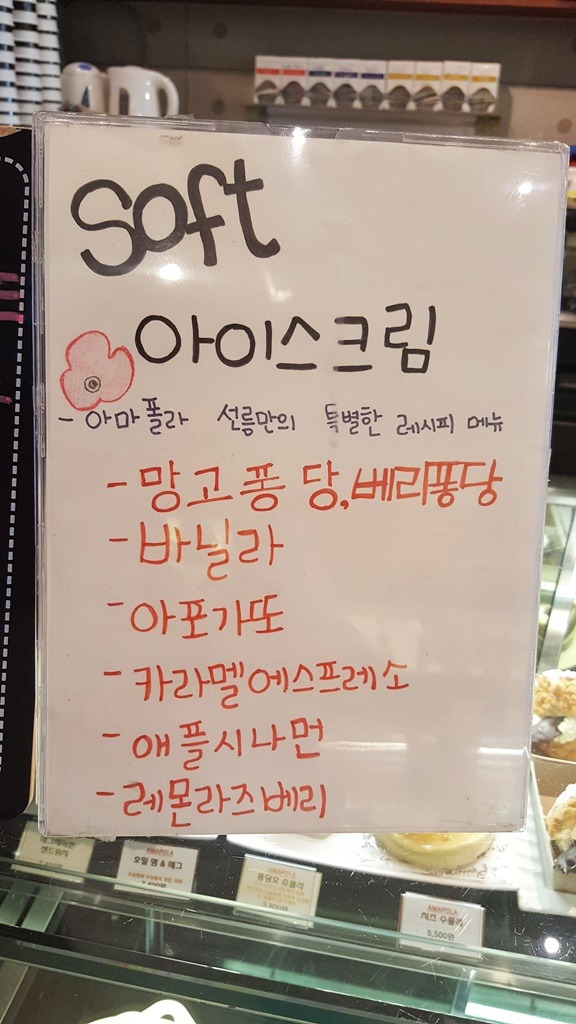 Soft
아이스크림
- 아마폴라 선릉만의 특별한 레시피 메뉴
- 망고퐁당, 베리퐁당
- 바닐라
- 아포가또
- 카라멜에스프레소
- 애플시나먼
- 레몬라즈베리
AMAPOLA
오믈렛 & 에그
AMAPOLA
퐁당오쇼콜라
AMAPOLA
치즈수플레
5,500원